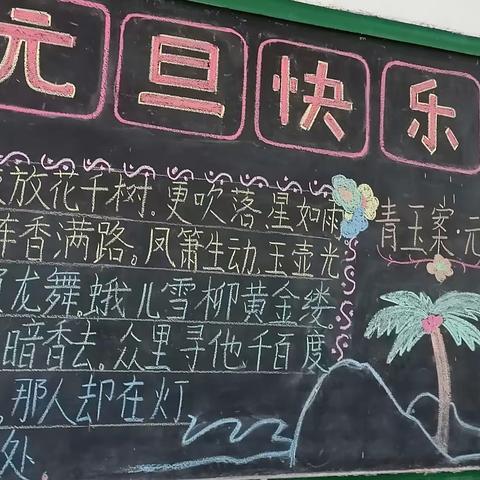 元旦快乐
放花千树。更吹落,星如雨
香满路。凤箫生动,玉壶光
龙舞。蛾儿雪柳黄金缕。
暗香去。众里寻他千百度
。那人却在灯
处
青玉案·元